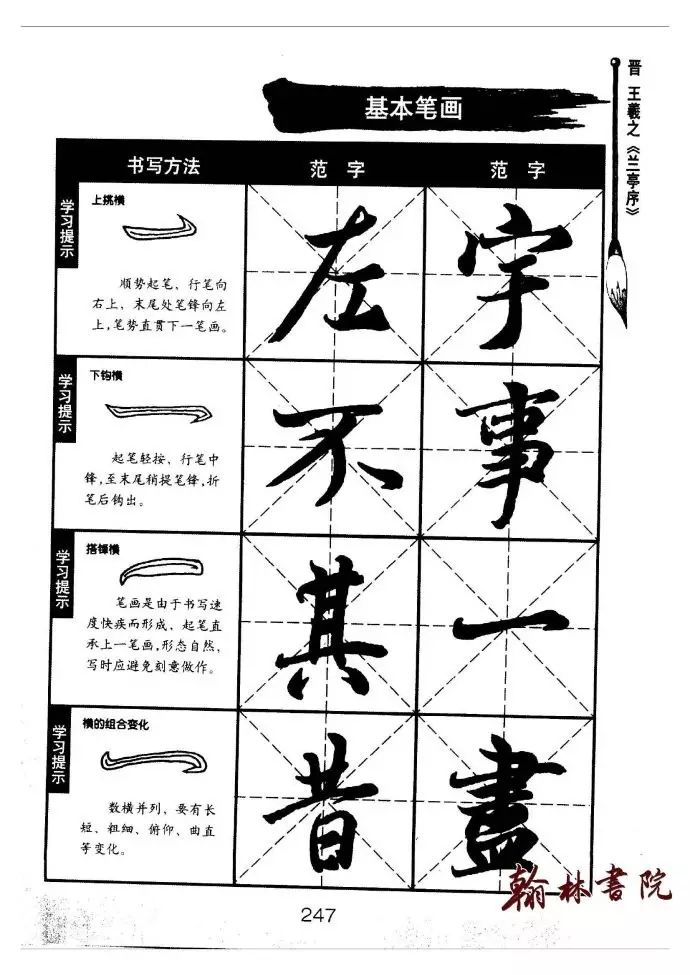 基本笔画
晋 王羲之《兰亭序》
书写方法 范 字 范 字
学习提示
上挑横
顺势起笔、行笔向
右上、末尾处笔锋向左
上,笔势直贯下一笔画。
左 宇
学习提示
下钩横
起笔轻按、行笔中
锋,至末尾稍提笔锋,折
笔后钩出。
不 事
学习提示
搭锋横
笔画是由于书写速
度快疾而形成、起笔直
承上一笔画,形态自然,
写时应避免刻意做作。
其 一
学习提示
横的组合变化
数横并列、要有长
短、粗细、俯仰、曲直
等变化。
昔 盡
翰林書院
247